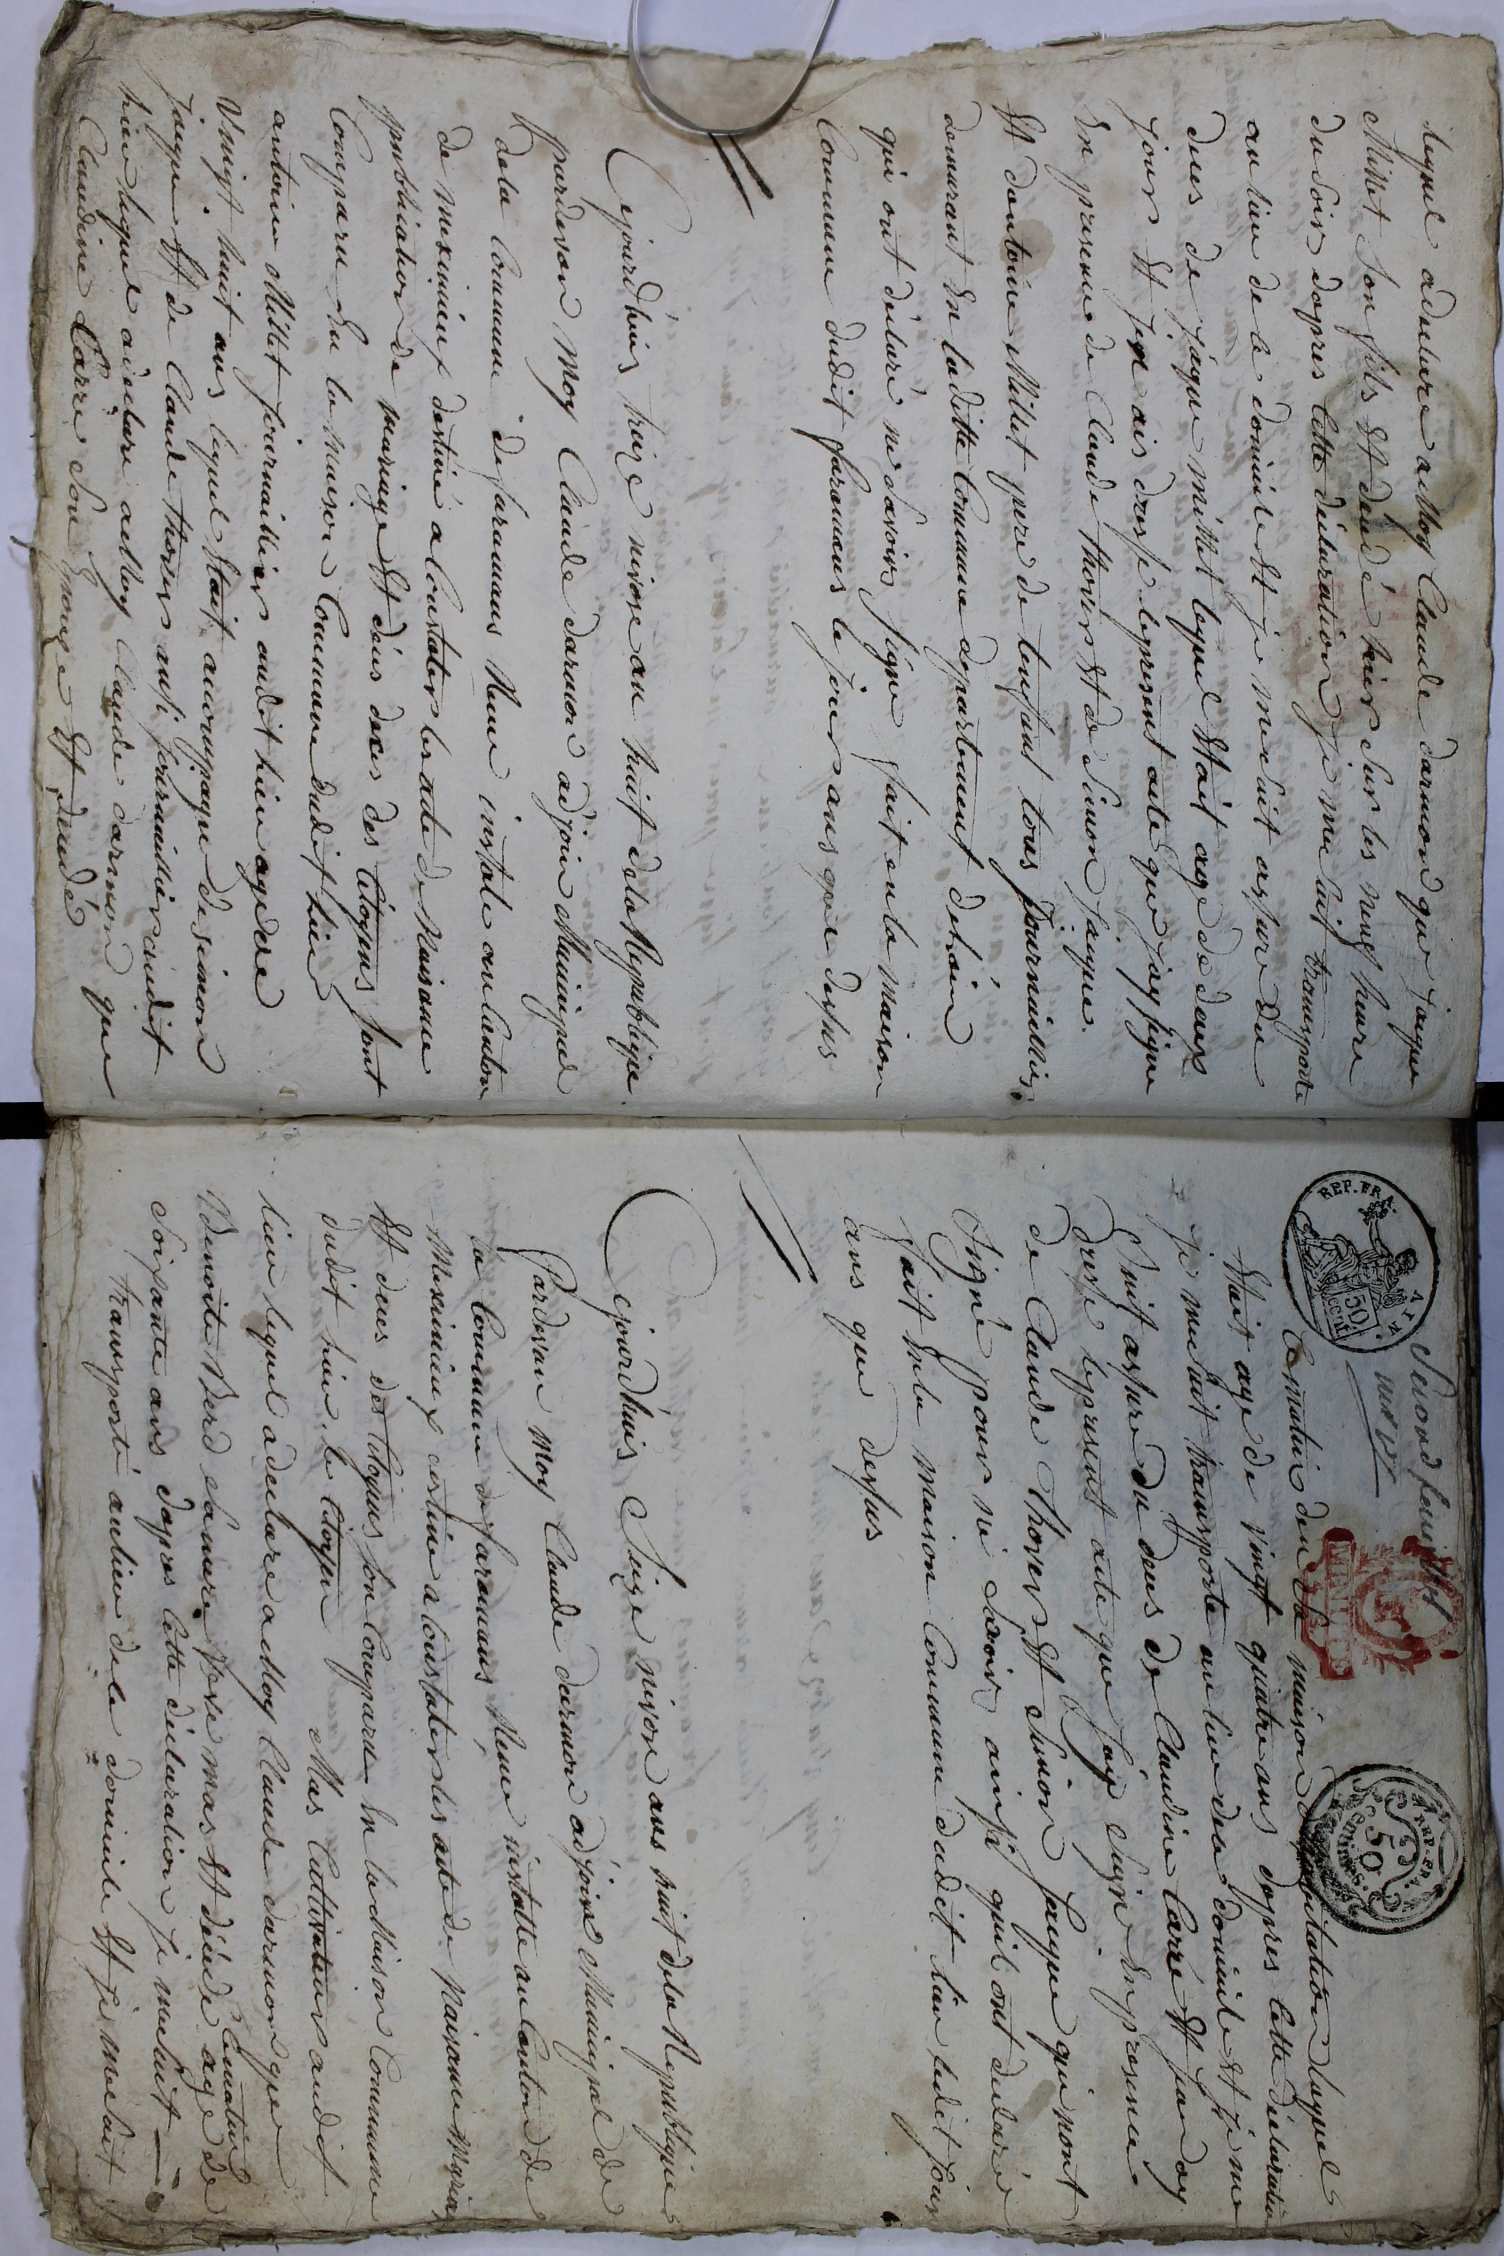 lequel a declaré a Moy Claude darmond que jaque
Millet son fils Et decedé hier sur les neuf heure
du soir dapres cette déclaration je me suit transporte
au lieu de le domicile Et je me suit assuré du
dues de jaque millet lequel Etait age de deux
jour Et jen ais dressé le present acte que jay signe
En presence de Claude thover Et de Simon jaque
Et dantoine Millet pere de lenfant tous journaillier
demeurant En laditte Commune departement delain
qui ont déclaré ne savoir signe fait en la maison
Commune dudit faramans le jour ans que dessus
Cejourdhuis treize nivose an huit de la Republique
pardevan moy Claude darmon adjoin Municipal
de la Commune de faramans Neuve instale au Canton
de meximieux destiné a Constater les acte de Naissance
publication de mariage Et deces des Citoyens sont
Comparu En la maison Commune dudit lieu
antoine Millet journaillier audit lieu agé de
vingt huit ans lequel Etait accompagné de simon
jaque Et de Claude thover ausi journaillier audit
lieu lequel a déclaré a Moy Claude darmon que
Claudine Carré son Epouze Et decedé
Second feuillet
REP. FRA.
50
REP. FRA.
50
Ce matin den sa maison dhabitation laquel
Etait age de vingt quatre ans dapres cette déclaration
je me suit transporte au lieu de sa domicile Et je me
suit assuré du dues de Claudine Carré Et jen ay
dressé le present acte que jaÿ signé En presence
de Claude Thover Et Simon jaque qui nont
signé pour ne savoir ainsi quil ont declaré
fait En la maison Commune dudit lieu ledit jour
ans que dessus
Cejourdhuis Seize nivose ans huit de la Republique
Pardevan moy Claude darmon adjoint Municipal de
la Commune de faramans Neuve instalte au Canton de
Meximieux destiné a Constater les acte de Naissance Mariage
Et dues des Citoyens son Comparu En la Maison Commune
dudit lieu le Citoyen Mas Cultivateur audit
lieu lequel a declaré a Moy Claude darmon que
Benoite Berd veuve mas Et décédé Cematin age de
Soixante ans dapres cette déclaration je me suit
transporté au lieu de le domicile Et je me suit